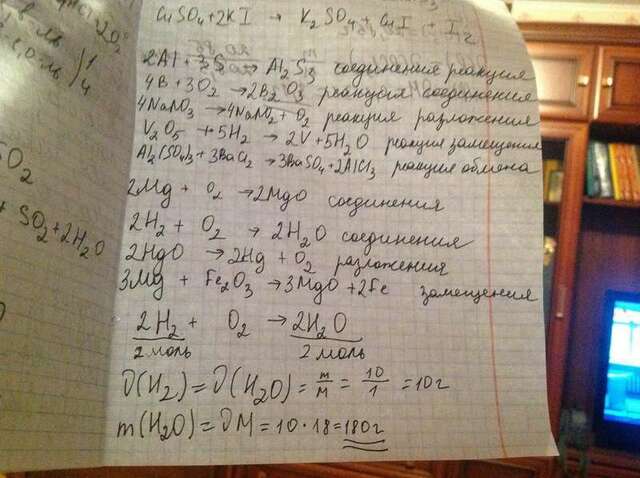 O₂
в ль
е, о ль
1/4
O₂
+ SO₂+2H₂O
CuSO₄+2KI → K₂SO₄+CuI + I₂
2Al + 3S → Al₂S₃ соединения реакция
4B + 3O₂ → 2B₂O₃ реакция соединения
4NaNO₃ → 4NaNO₂ + O₂ реакция разложения
V₂O₅ + 5H₂ → 2V + 5H₂O реакция замещения
Al₂(SO₄)₃+3BaCl₂ → 3BaSO₄+2AlCl₃ реакция обмена
2Mg + O₂ → 2MgO соединения
2H₂ + O₂ → 2H₂O соединения
2HgO → 2Hg + O₂ разложения
3Mg + Fe₂O₃ → 3MgO + 2Fe замещения
2H₂ + O₂ → 2H₂O
2 моль 2 моль
ϑ(H₂) = ϑ(H₂O) = m/M = 10/1 = 10г
m(H₂O) = ϑM = 10·18=180г